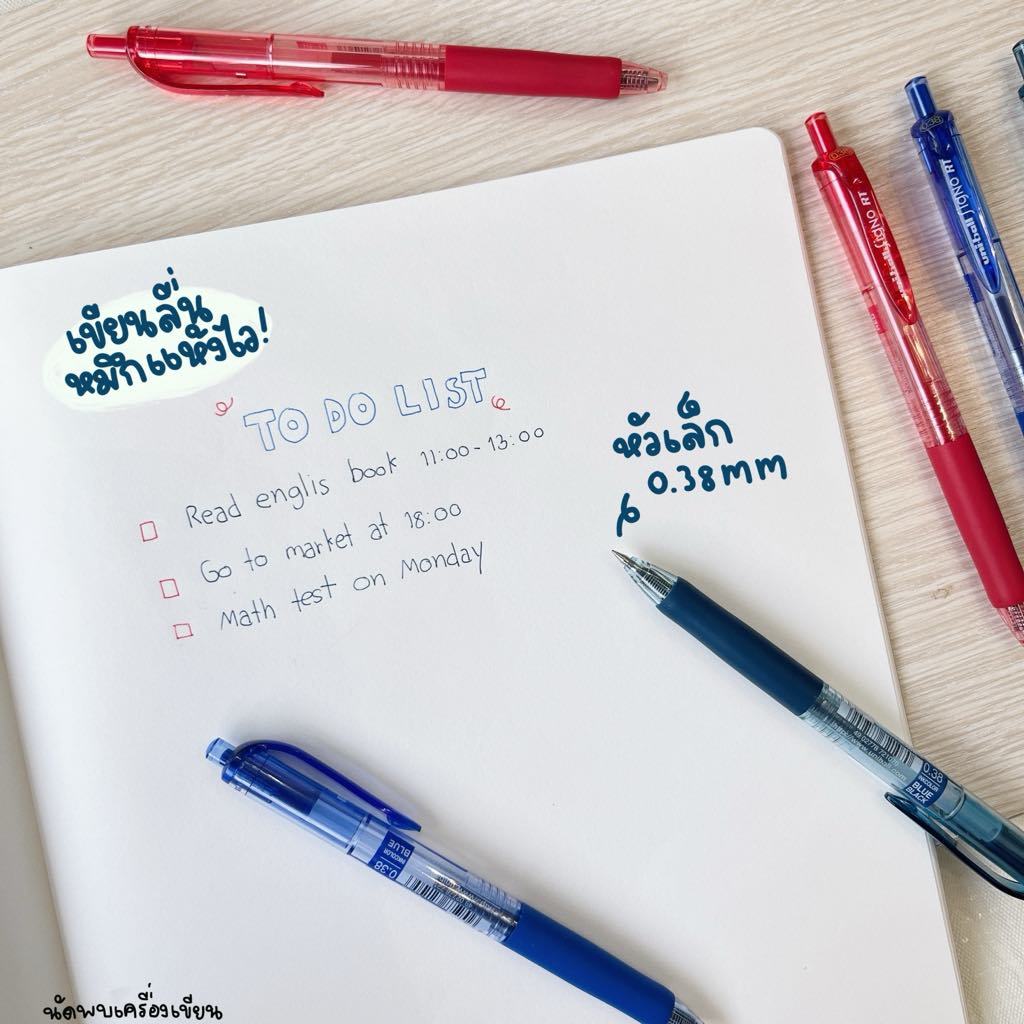 เขียนลื่น
หมึกแห้งไว!
TO DO LIST
Read englis book 11:00-13:00
Go to market at 18:00
Math test on Monday
หัวเล็ก
0.38mm
uniball SigNO RT
uniball SigNO RT
0.38
0.38
INKCOLOR
BLUE
BLACK
0.38
INKCOLOR
BLUE
นัดพบเครื่องเขียน